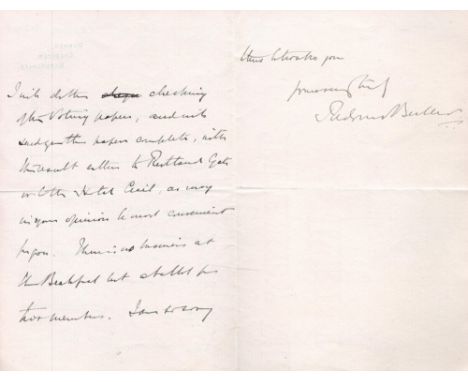 I will do the checking
of the Voting papers, and will
send you the papers complete, with
the result either to Rutland Gate
or to the Hotel Cecil, as may
in your opinion be most convenient
for you. There is no business at
the Breakfast but a ballot for
two members. I am so sorry
thus to trouble you
yours very truly